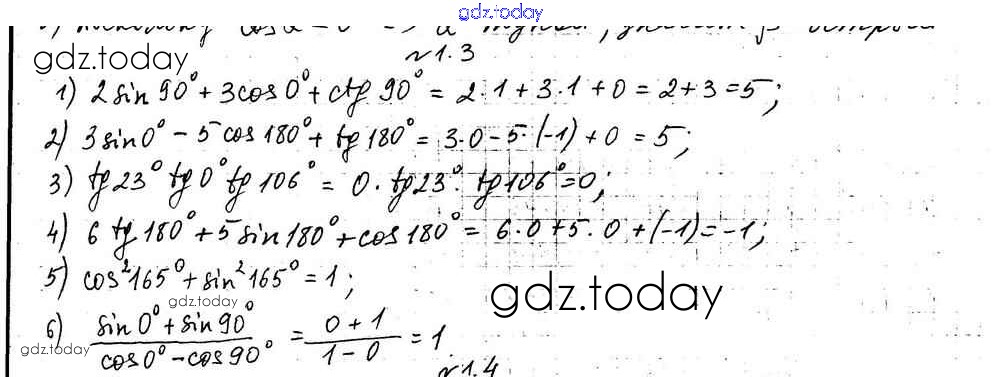 gdz.today
cos α
gdz.today
№1.3
1) 2 sin 90° + 3cos 0° + ctg 90° = 2·1 + 3·1 + 0 = 2 + 3 = 5;
2) 3 sin 0° - 5 cos 180° + tg 180° = 3·0 - 5·(-1) + 0 = 5;
3) tg 23° tg 0° tg 106° = 0 · tg 23° · tg 106° = 0;
4) 6 tg 180° + 5 sin 180° + cos 180° = 6·0 + 5·0 + (-1) = -1;
5) cos² 165° + sin² 165° = 1;
gdz.today
gdz.today
6) (sin 0° + sin 90°) / (cos 0° - cos 90°) = (0 + 1) / (1 - 0) = 1
gdz.today
№1.4